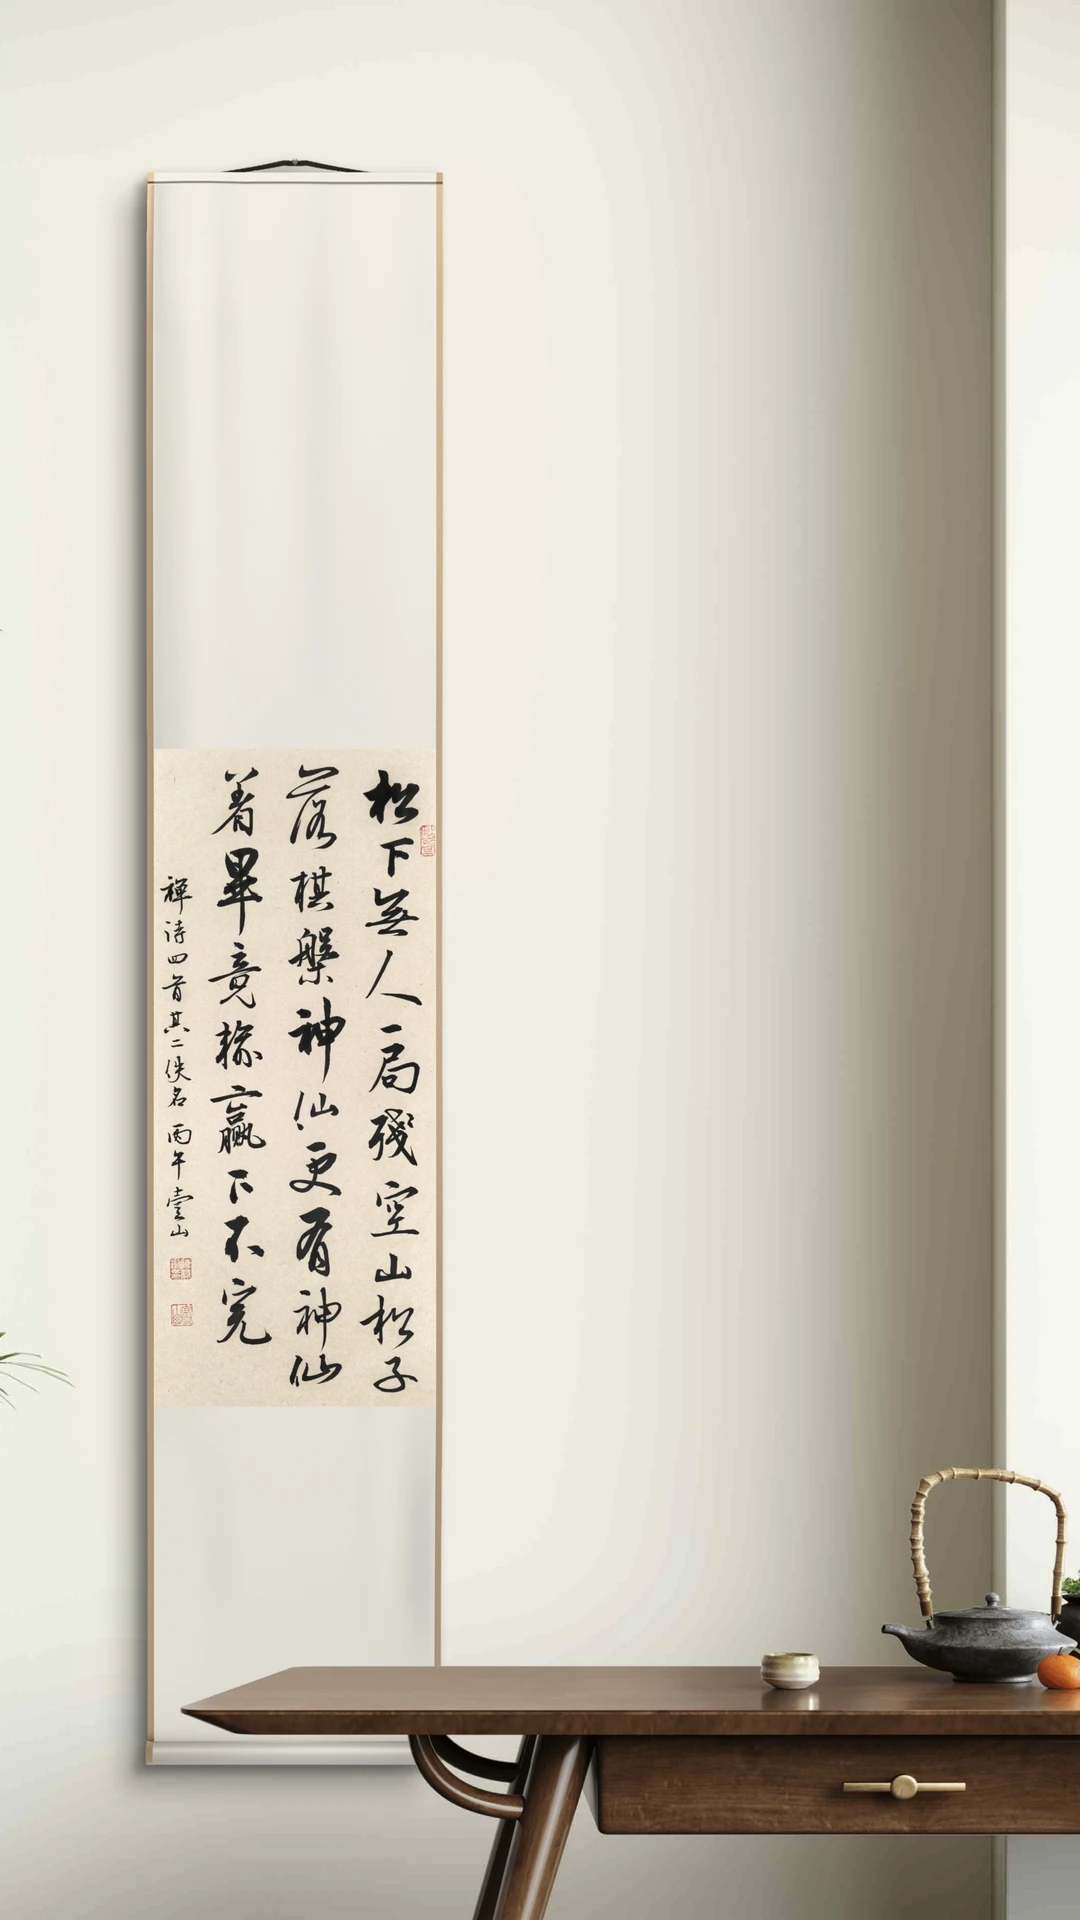 松下無人一局殘空山松子
落棋槃神仙更有神仙
着畢竟输赢下不完
禅诗四首其二佚名 丙午壹山